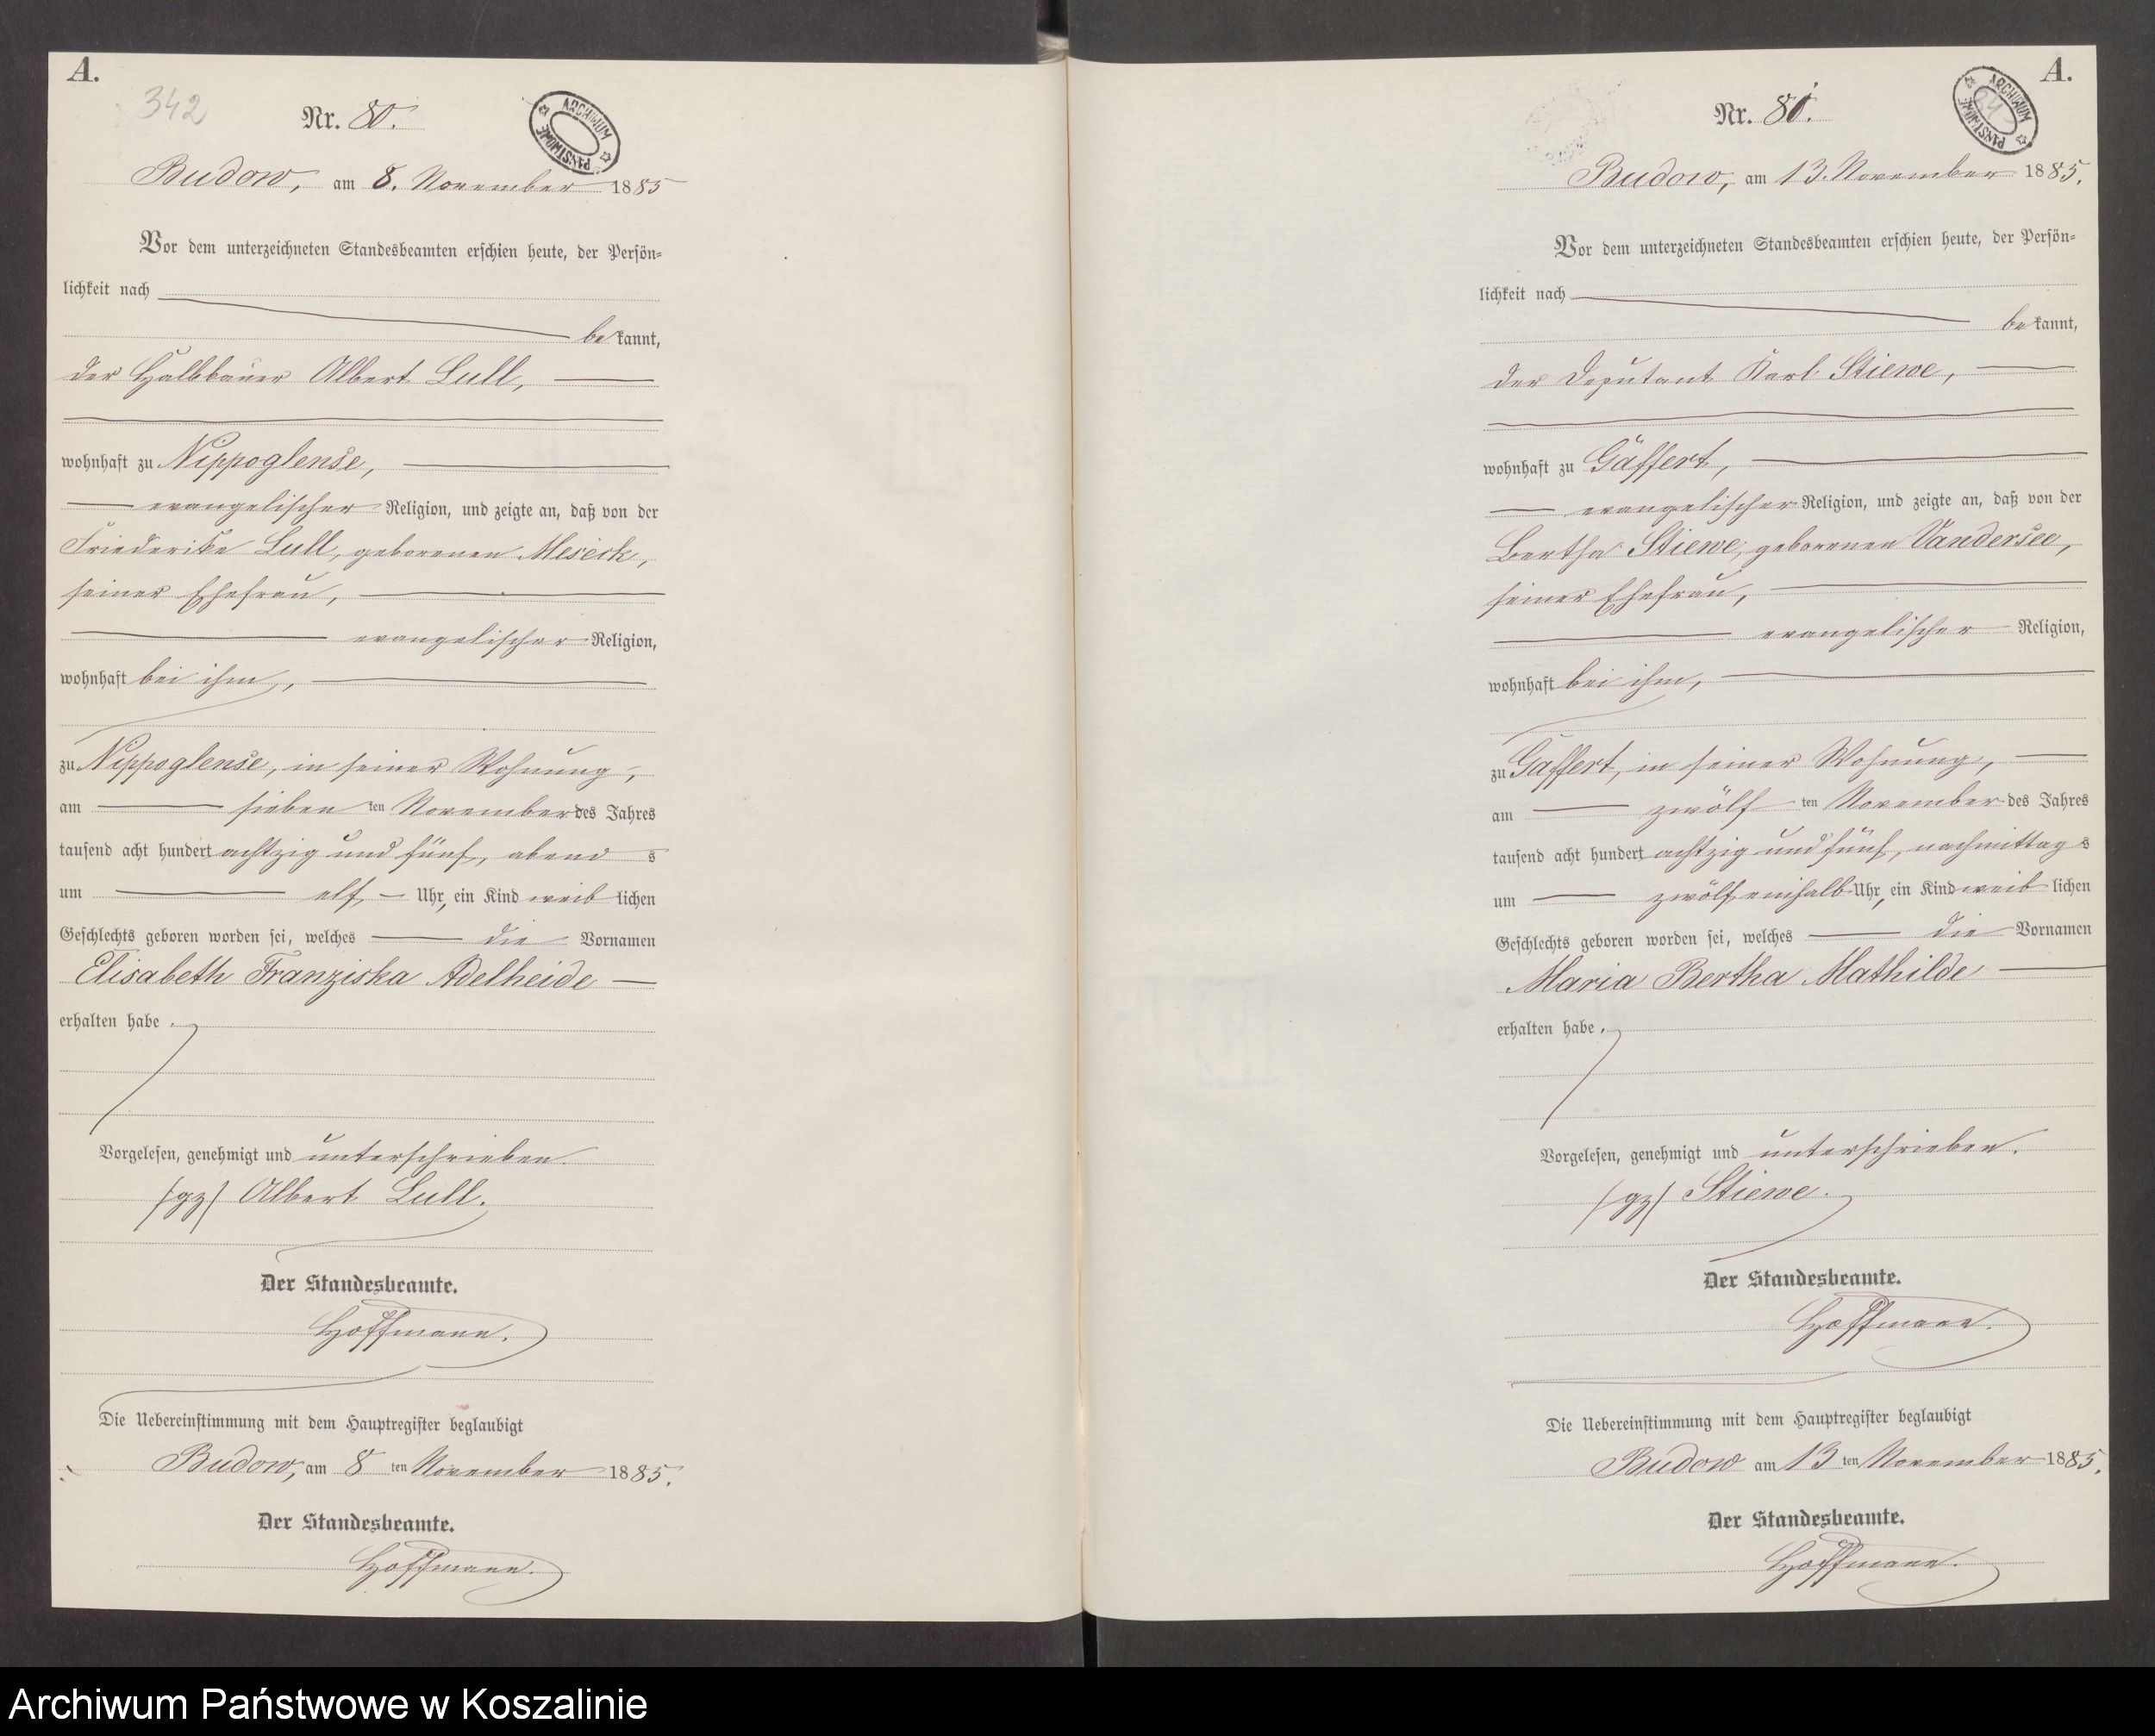 A.
342
Nr. 80.
ARCHIWUM PAŃSTWOWE
Budow, am 8. November 1885
Vor dem unterzeichneten Standesbeamten erschien heute, der Persön-
lichkeit nach
bekannt,
der Halbbauer Albert Lull,
wohnhaft zu Nippoglense,
evangelischer Religion, und zeigte an, daß von der
Friederike Lull, geborenen Meseck,
seiner Ehefrau,
evangelischer Religion,
wohnhaft bei ihm,
zu Nippoglense, in seiner Wohnung,
am sieben ten November des Jahres
tausend acht hundert achtzig und fünf, abend s
um elf Uhr, ein Kind weib lichen
Geschlechts geboren worden sei, welches die Vornamen
Elisabeth Franziska Adelheide
erhalten habe.
Vorgelesen, genehmigt und unterschrieben.
/gz/ Albert Lull.
Der Standesbeamte.
Hoffmann.
Die Uebereinstimmung mit dem Hauptregister beglaubigt
Budow, am 8 ten November 1885.
Der Standesbeamte.
Hoffmann.
A.
Nr. 81.
ARCHIWUM PAŃSTWOWE
Budow, am 13. November 1885.
Vor dem unterzeichneten Standesbeamten erschien heute, der Persön-
lichkeit nach
bekannt,
der Deputant Karl Stiewe,
wohnhaft zu Gaffert,
evangelischer Religion, und zeigte an, daß von der
Bertha Stiewe, geborenen Vandersee,
seiner Ehefrau,
evangelischer Religion,
wohnhaft bei ihm,
zu Gaffert, in seiner Wohnung,
am zwölf ten November des Jahres
tausend acht hundert achtzig und fünf, nachmittag s
um zwölfeinhalb Uhr, ein Kind weib lichen
Geschlechts geboren worden sei, welches die Vornamen
Maria Bertha Mathilde
erhalten habe.
Vorgelesen, genehmigt und unterschrieben.
/gz/ Stiewe.
Der Standesbeamte.
Hoffmann.
Die Uebereinstimmung mit dem Hauptregister beglaubigt
Budow am 13 ten November 1885.
Der Standesbeamte.
Hoffmann.
Archiwum Państwowe w Koszalinie